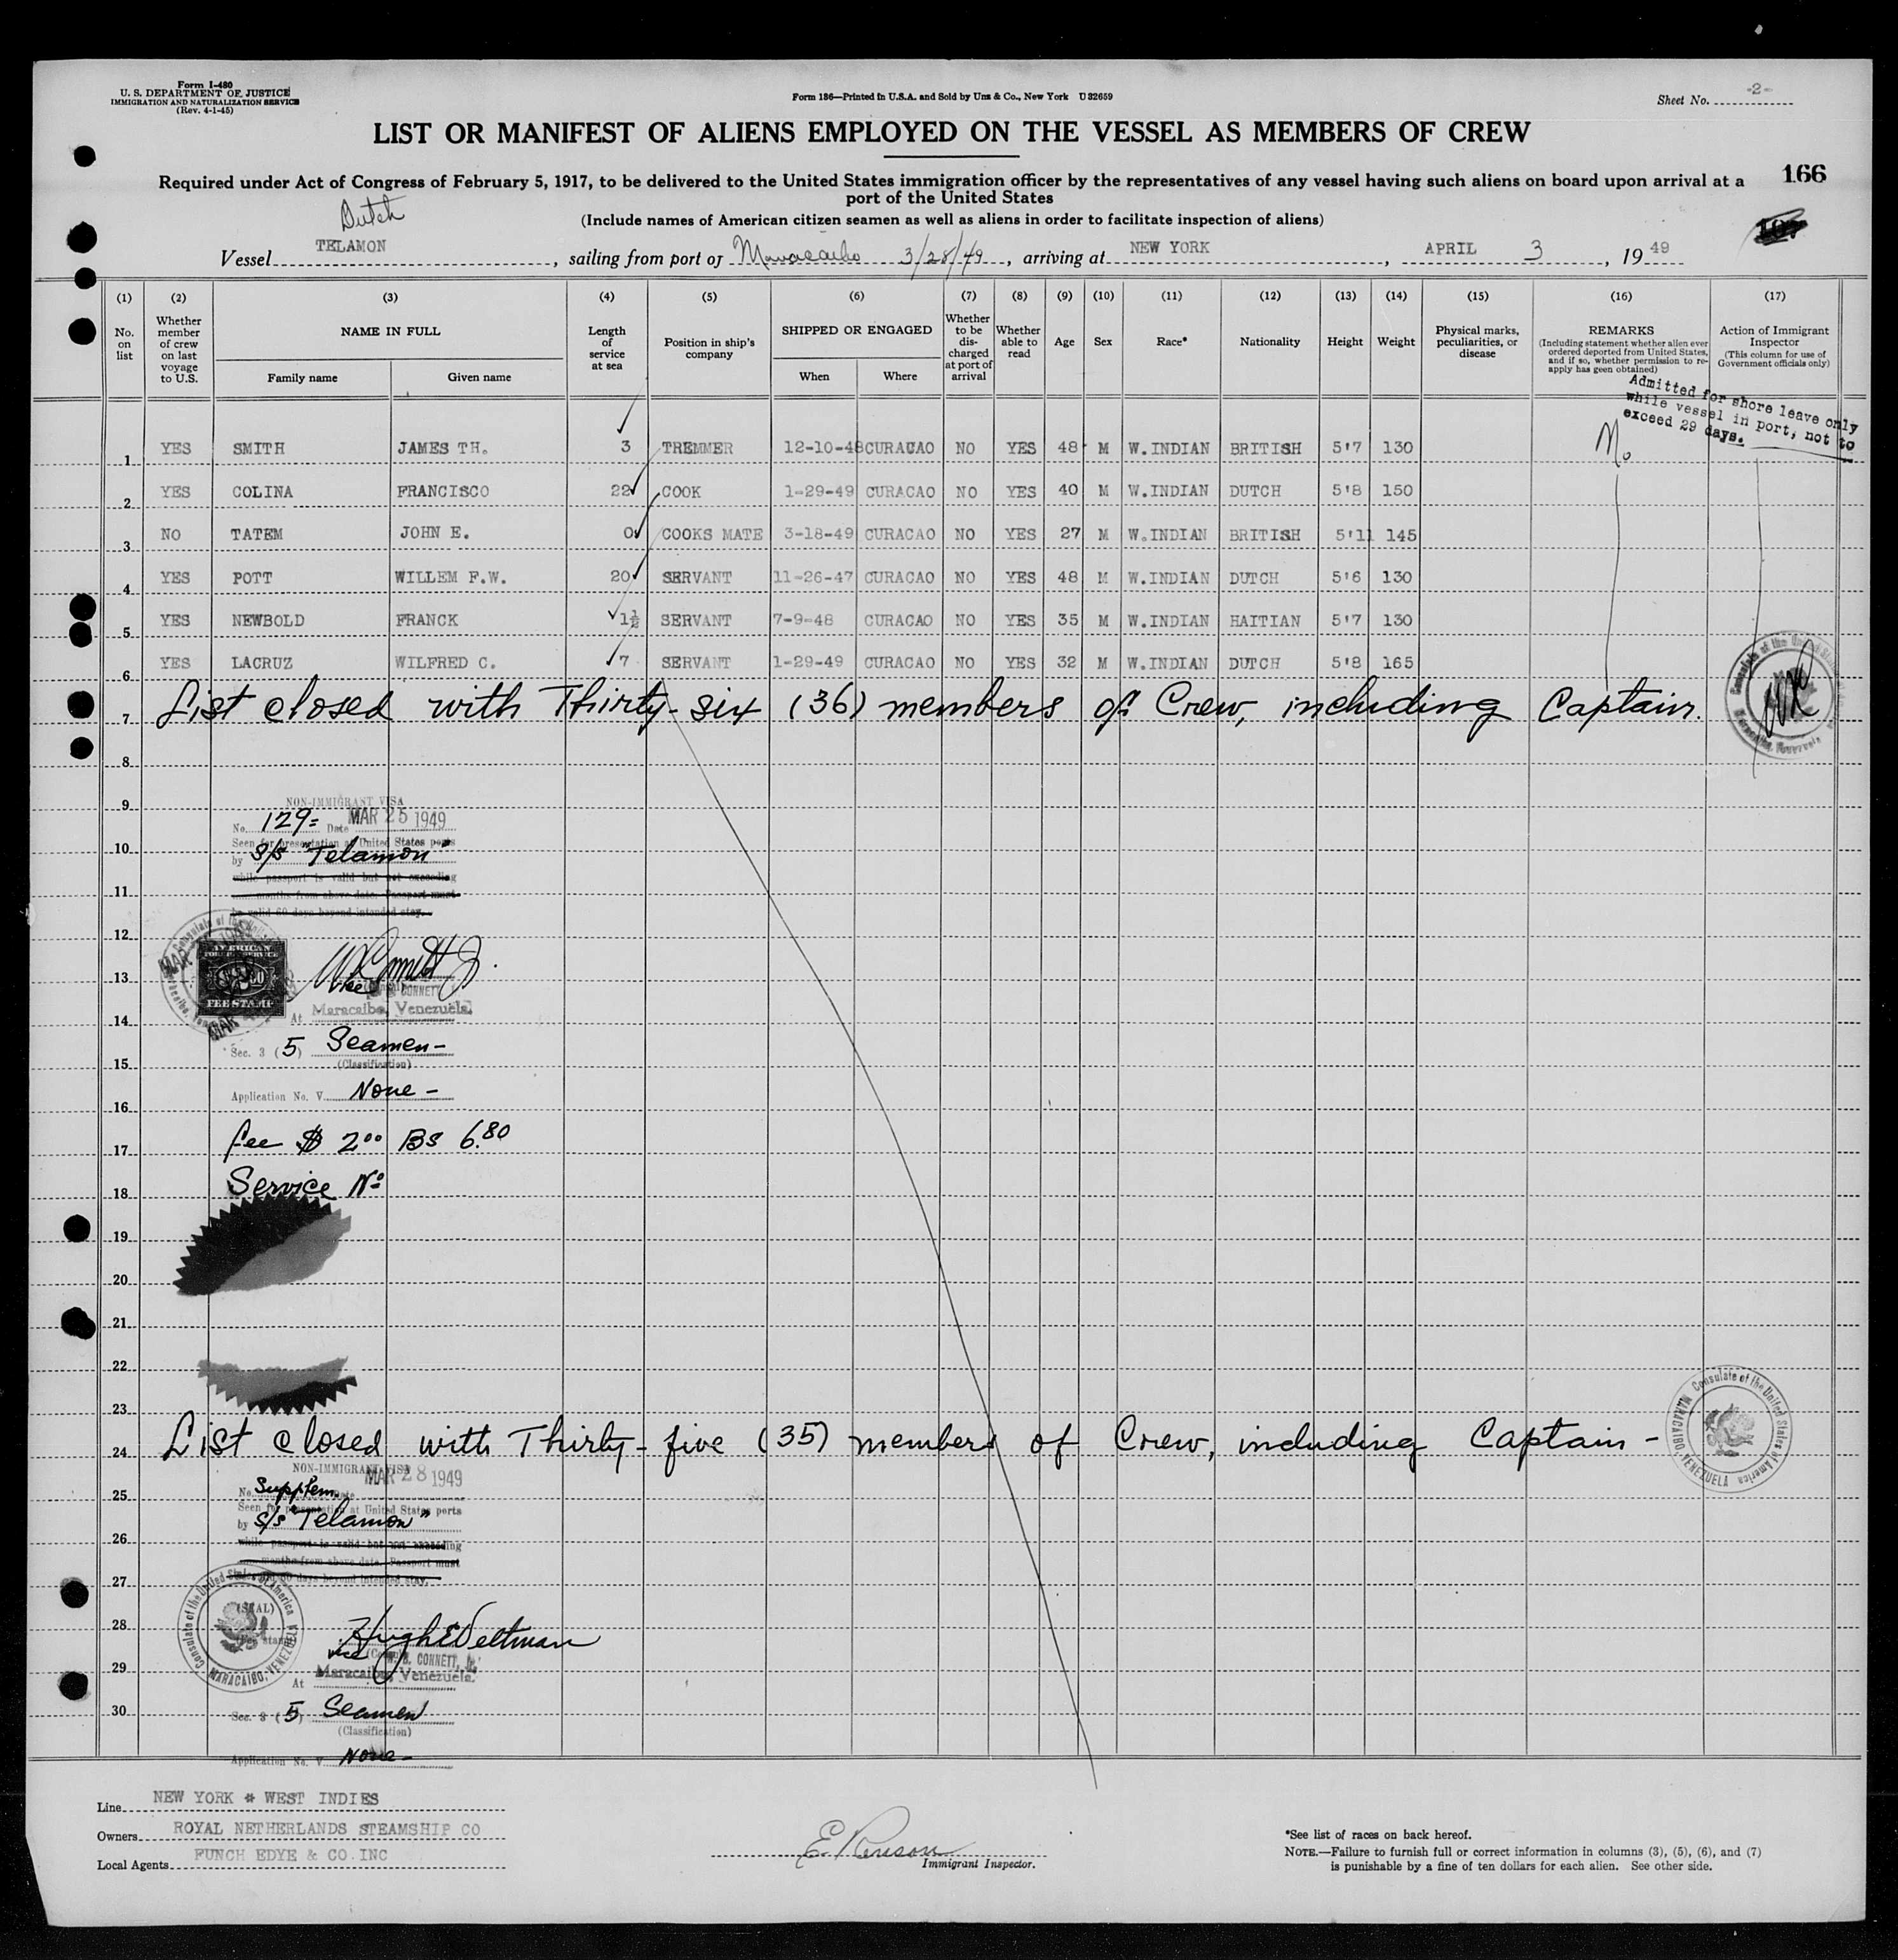 Form I-480
U. S. DEPARTMENT OF JUSTICE
IMMIGRATION AND NATURALIZATION SERVICE
(Rev. 4-1-45)
Form 186—Printed in U.S.A. and Sold by Unz & Co., New York U 32659
Sheet No. -2-
LIST OR MANIFEST OF ALIENS EMPLOYED ON THE VESSEL AS MEMBERS OF CREW
166
Required under Act of Congress of February 5, 1917, to be delivered to the United States immigration officer by the representatives of any vessel having such aliens on board upon arrival at a
port of the United States
(Include names of American citizen seamen as well as aliens in order to facilitate inspection of aliens)
Dutch
Vessel TELAMON, sailing from port of Maracaibo 3/28/49, arriving at NEW YORK, APRIL 3, 1949
(1) (2) (3) (4) (5) (6) (7) (8) (9) (10) (11) (12) (13) (14) (15) (16) (17)
No. on list
Whether member of crew on last voyage to U.S.
NAME IN FULL
Family name Given name
Length of service at sea
Position in ship's company
SHIPPED OR ENGAGED
When Where
Whether to be discharged at port of arrival
Whether able to read
Age
Sex
Race*
Nationality
Height
Weight
Physical marks, peculiarities, or disease
REMARKS
(Including statement whether alien ever ordered deported from United States, and if so, whether permission to re-apply has geen obtained)
Action of Immigrant Inspector
(This column for use of Government officials only)
Admitted for shore leave only
while vessel in port, not to
exceed 29 days.
1 YES SMITH JAMES TH. 3 TREMMER 12-10-48 CURACAO NO YES 48 M W.INDIAN BRITISH 5'7 130 No
2 YES COLINA FRANCISCO 22 COOK 1-29-49 CURACAO NO YES 40 M W.INDIAN DUTCH 5'8 150
3 NO TATEM JOHN E. 0 COOKS MATE 3-18-49 CURACAO NO YES 27 M W.INDIAN BRITISH 5'11 145
4 YES POTT WILLEM F.W. 20 SERVANT 11-26-47 CURACAO NO YES 48 M W.INDIAN DUTCH 5'6 130
5 YES NEWBOLD FRANCK 1½ SERVANT 7-9-48 CURACAO NO YES 35 M W.INDIAN HAITIAN 5'7 130
6 YES LACRUZ WILFRED C. 7 SERVANT 1-29-49 CURACAO NO YES 32 M W.INDIAN DUTCH 5'8 165
7 List closed with Thirty-six (36) members of Crew, including Captain.
8
9
NON-IMMIGRANT VISA
No. 129= Date MAR 25 1949
Seen for presentation at United States ports
10
by S/S "Telamon"
while passport is valid but not exceeding
11
months from above date. Passport must
be valid 60 days beyond intended stay.
12
AMERICAN
FOREIGN SERVICE
13
FEE STAMP
Vice
CONNETT
At Maracaibo, Venezuela.
14
Sec. 3 (5) Seamen-
(Classification)
15
Application No. V None -
16
fee $ 2.00 Bs 6.80
17
Service No
18
19
20
21
22
23
24 List closed with Thirty-five (35) members of Crew, including Captain -
Consulate of the United States of America
MARACAIBO, VENEZUELA
NON-IMMIGRANT VISA
MAR 28 1949
No. Supplem. Date
25
Seen for presentation at United States ports
by S/S "Telamon"
26
while passport is valid but not exceeding
months from above date. Passport must
27
60 days beyond intended stay.
Consulate of the United States of America
MARACAIBO, VENEZUELA
(SEAL)
28
Hugh E Veltman
vice
W. B. CONNETT, Jr.
29
At Maracaibo, Venezuela.
30
Sec. 3 (5) Seamen
(Classification)
Application No. V None -
Line NEW YORK * WEST INDIES
Owners ROYAL NETHERLANDS STEAMSHIP CO
Local Agents FUNCH EDYE & CO.INC
Immigrant Inspector.
*See list of races on back hereof.
NOTE.—Failure to furnish full or correct information in columns (3), (5), (6), and (7)
is punishable by a fine of ten dollars for each alien. See other side.